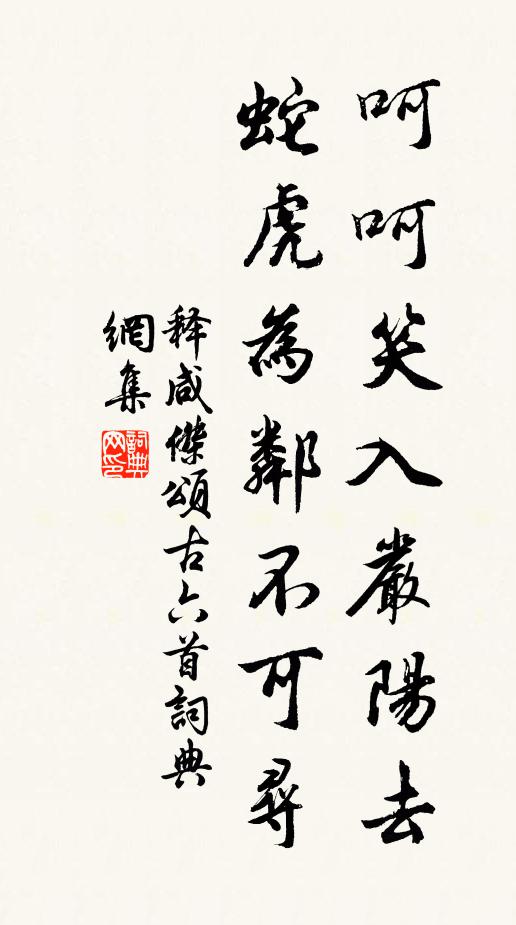 呵呵笑入嚴陽去
蛇虎為鄰不可尋
释咸傑頌古六首詞典
網集
詞典网印